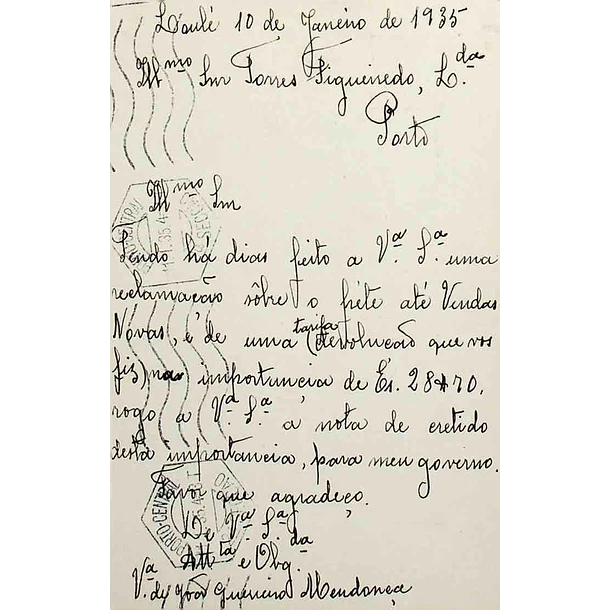 Loulé 10 de Janeiro de 1935
Ill.mo Snr Torres Figueiredo, L.da
Porto
Ill.mo Snr
Tendo há dias feito a V.a S.a uma
reclamação sôbre o fréte até Vendas
Nóvas, e de uma tarifa (devolução que vos
fiz) na importancia de Es. 28$70,
rogo a V.a S.a a nota de cretido
desta importancia, para meu governo.
Favor que agradeço.
De V.a S.a
Att.ta e Obg.da
V.a de João Guerreiro Mendonça
PORTO-CENTRAL